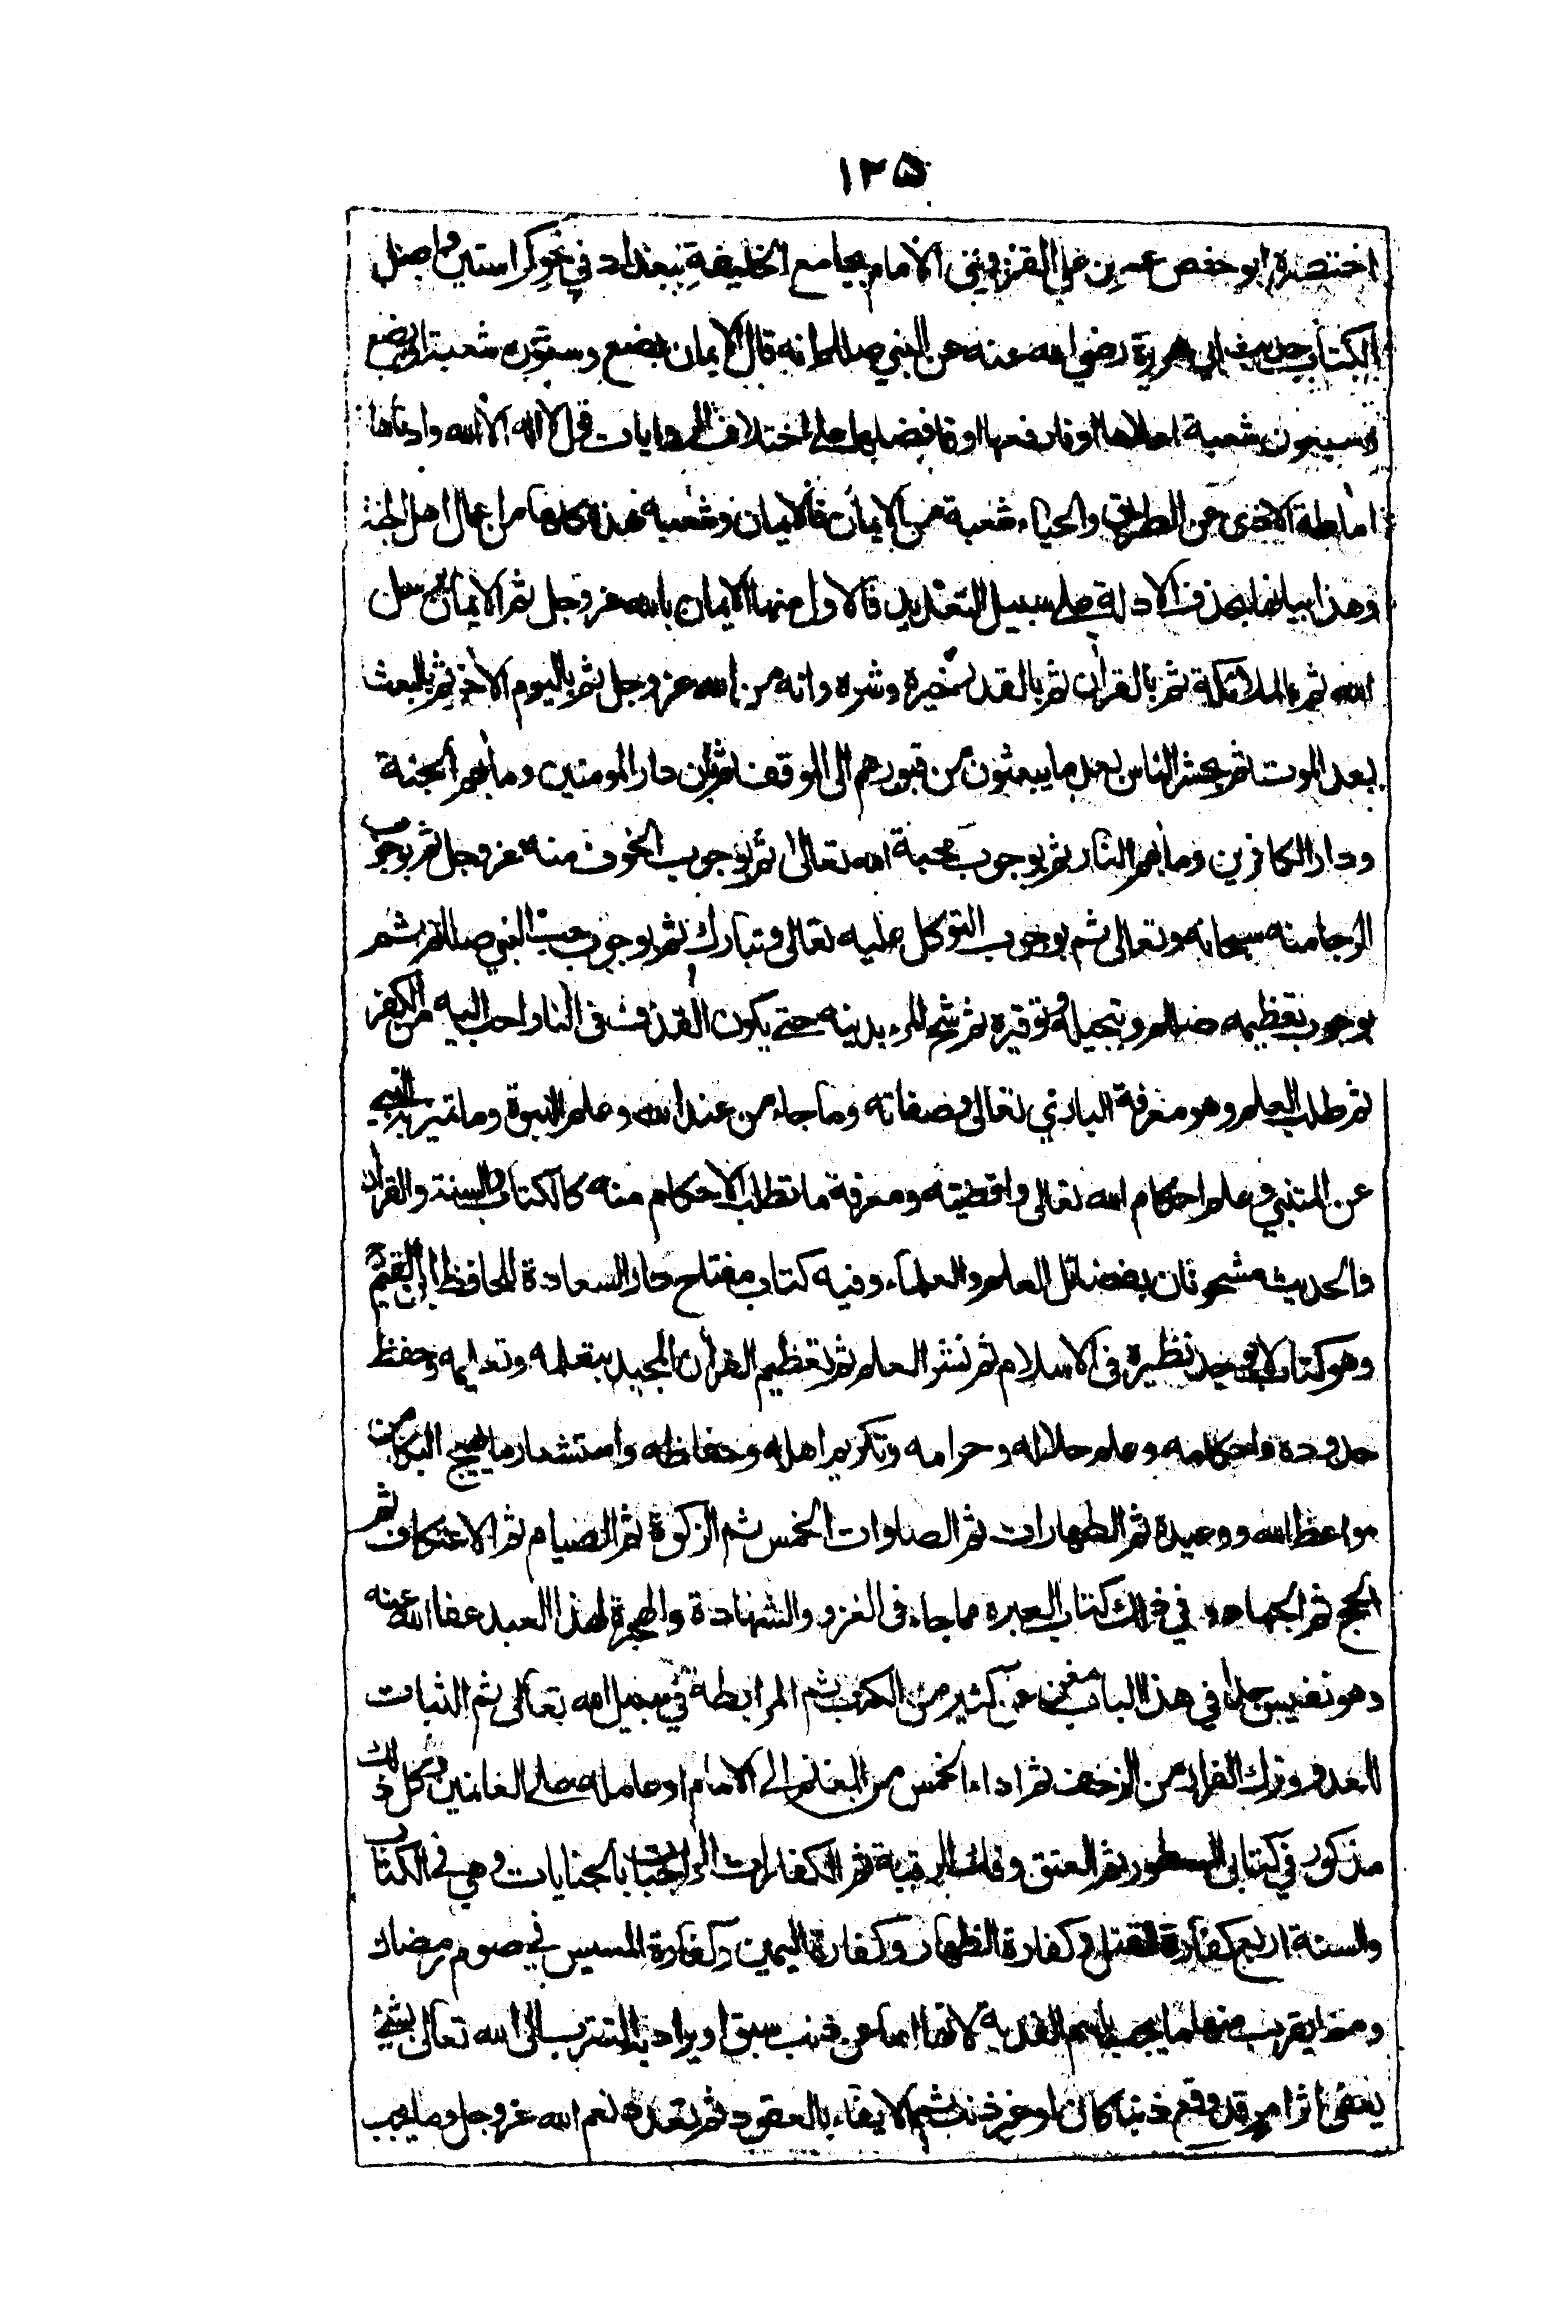 ١٢٥
اختصره ابو حفص عمر بن علي القزويني الامام بجامع الخليفة ببغداد في نحو كراستين واصل
الكتاب حديث ابي هريرة رضي الله عنه عن النبي صللم انه قال الايمان بضع وستون شعبة او بضع
وسبعون شعبة اعلاها او فارفعها او فافضلها على اختلاف الروايات قول لا اله الا الله وادناها
اماطة الاذى عن الطريق والحياء شعبة من الايمان فالايمان وشعبه هذه كلها من اعمال اهل الجنة
وهذا بيانها بحذف الادلة على سبيل التعديد فالاول منها الايمان بالله عز وجل ثم الايمان برسل
الله ثم بالملائكة ثم بالقران ثم بالقدر خيره وشره وانه من الله عز وجل ثم باليوم الاخر ثم بالبعث
بعد الموت ثم بحشر الناس بعد ما يبعثون من قبورهم الى الموقف ثم بان دار المومنين وماٰبهم الجنة
ودار الكافرين وماٰبهم النار ثم بوجوب محبة الله تعالى ثم بوجوب الخوف منه عز وجل ثم بوجوب
الرجا منه سبحانه وتعالى ثم بوجوب التوكل عليه تعالى وتبارك ثم بوجوب حب النبي صللم ثم
بوجوب تعظيمه صللم وتبجيله وتوقيره ثم شح المرء بدينه حتى يكون القذف في النار احب اليه من الكفر
ثم طلب العلم وهو معرفة الباري تعالى وصفاته وما جاء من عند الله وعلم النبوة وما تميز به النبي
عن المتنبي وعلم احكام الله تعالى واقضيته ومعرفة ما تطلب الاحكام منه كالكتاب والسنة والقران
والحديث مشحونان بفضائل العلم والعلماء وفيه كتاب مفتاح دار السعادة للحافظ ابن القيم رح
وهو كتاب لا يوجد نظيره في الاسلام ثم نشر العلم ثم تعظيم القران المجيد بتعلمه وتعليمه وحفظ
حدوده واحكامه وعلم حلاله وحرامه وتكريم اهله وحفاظه واستشعار ما يهيج البكا من
مواعظ الله ووعيده ثم الطهارات ثم الصلوات الخمس ثم الزكوة ثم الصيام ثم الاعتكاف ثم
الحج ثم الجهاد وفي ذلك كتاب العبره مما جاء في الغزو والشهادة والهجرة لهذا العبد عفا الله عنه
وهو نفيس جدا في هذا الباب مغن عن كثير من الكتب ثم المرابطة في سبيل الله تعالى ثم الثبات
للعدو وترك الفرار من الزحف ثم اداء الخمس من المغنم الى الامام او عامله على الغانمين وكل ذلك
مذكور في كتابي المسطور ثم العتق وفك الرقبة ثم الكفارات الواجبات بالجنايات وهي في الكتاب
والسنة اربع كفارة القتل وكفارة الظهار وكفارة اليمين وكفارة المسيس في صوم رمضان
ومما يقرب منها ما يجب باسم الفدية لانها اما عن ذنب سبق او يراد بها التقرب الى الله تعالى بشيء
يعفى اثر امر قد وقع ذنبا كان او غير ذنب ثم الايفاء بالعقود ثم تعديد نعم الله عز وجل وما يجب